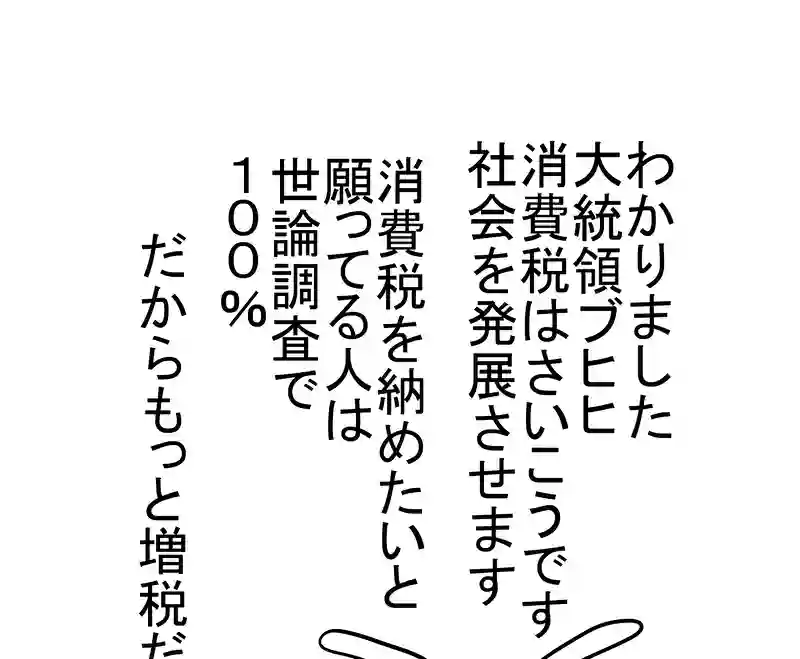 わかりました
大統領ブヒヒ
消費税はさいこうです
社会を発展させます
消費税を納めたいと
願ってる人は
世論調査で
100%
だからもっと増税だ